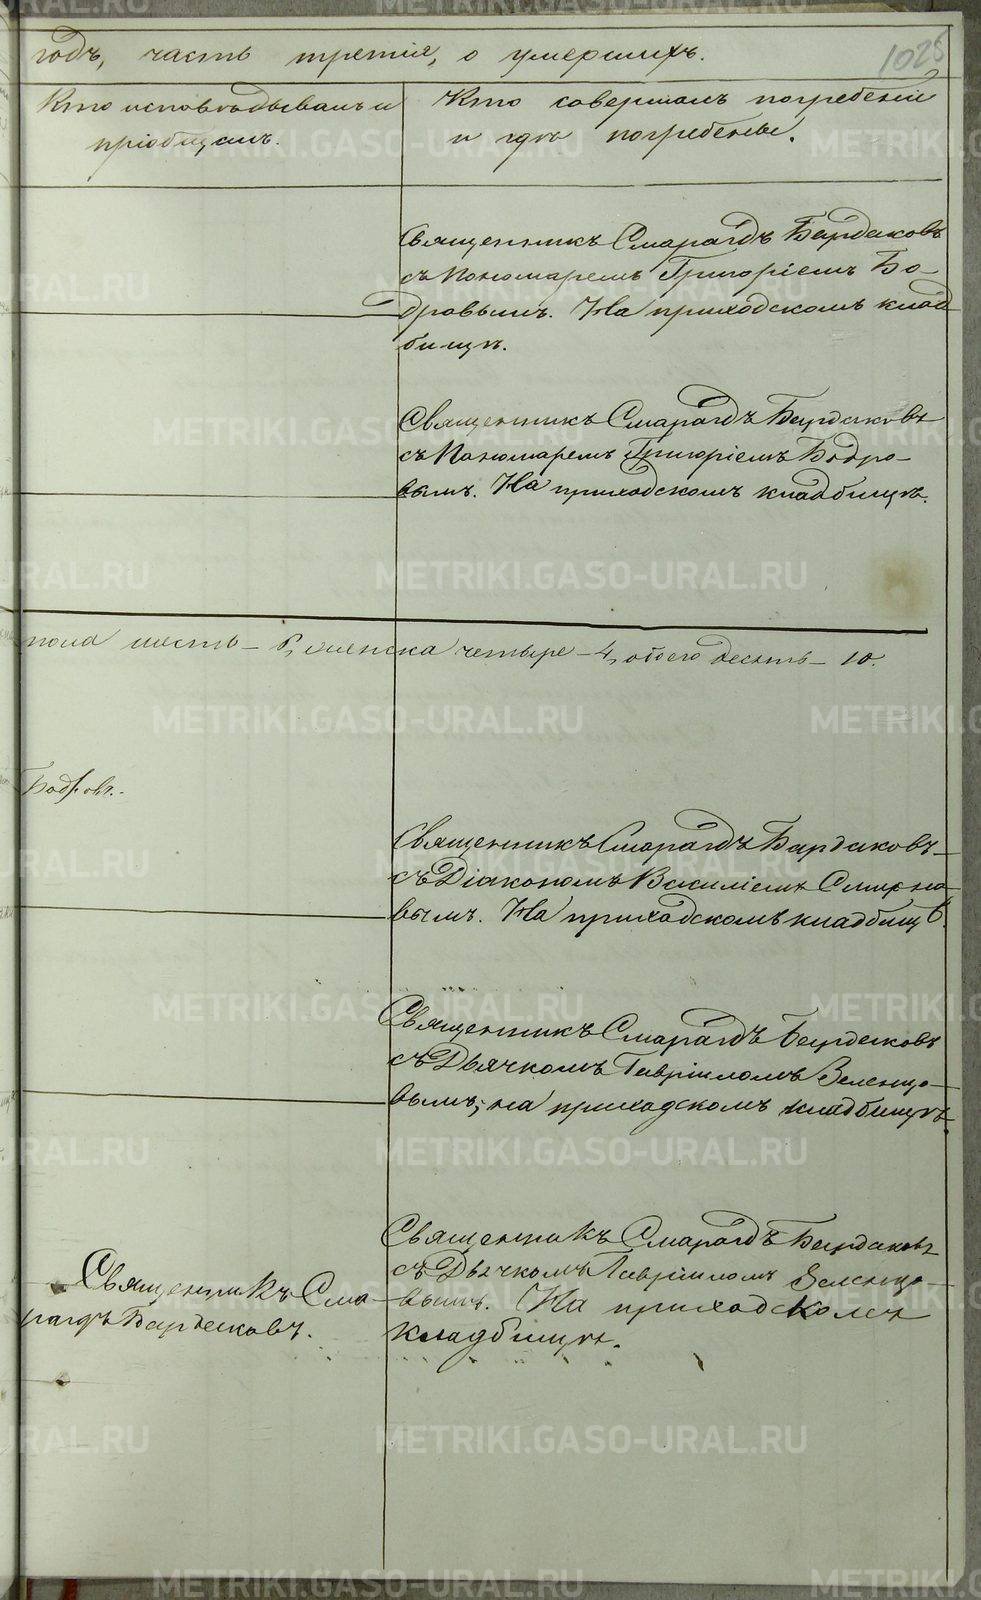 годъ, часть третія, о умершихъ.
1025
Кто исповѣдывалъ и
пріобщалъ.
Кто совершалъ погребеніе
и гдѣ погребены.
Священникъ Смарагдъ Бардаковъ
съ Пономаремъ Григоріемъ Бо-
дровымъ. На приходскомъ клад
бищѣ.
Священникъ Смарагдъ Бардаковъ
съ Пономаремъ Григоріемъ Бодро-
вымъ. На приходскомъ кладбищѣ.
пола шесть – 6, женска четыре – 4, обоего десять – 10.
Бодровъ.
Священникъ Смарагдъ Бардаковъ
съ Діакономъ Василіемъ Смирно-
вымъ. На приходскомъ кладбищѣ.
Священникъ Смарагдъ Бардаковъ
съ Дьячкомъ Гавріиломъ Зеленцо-
вымъ, на приходскомъ кладбищѣ.
Священникъ Сма-
рагдъ Бардаковъ.
Священникъ Смарагдъ Бардаковъ
съ Дьячкомъ Гавріиломъ Зеленцо-
вымъ. На приходскомъ
кладбищѣ.
METRIKI.GASO-URAL.RU